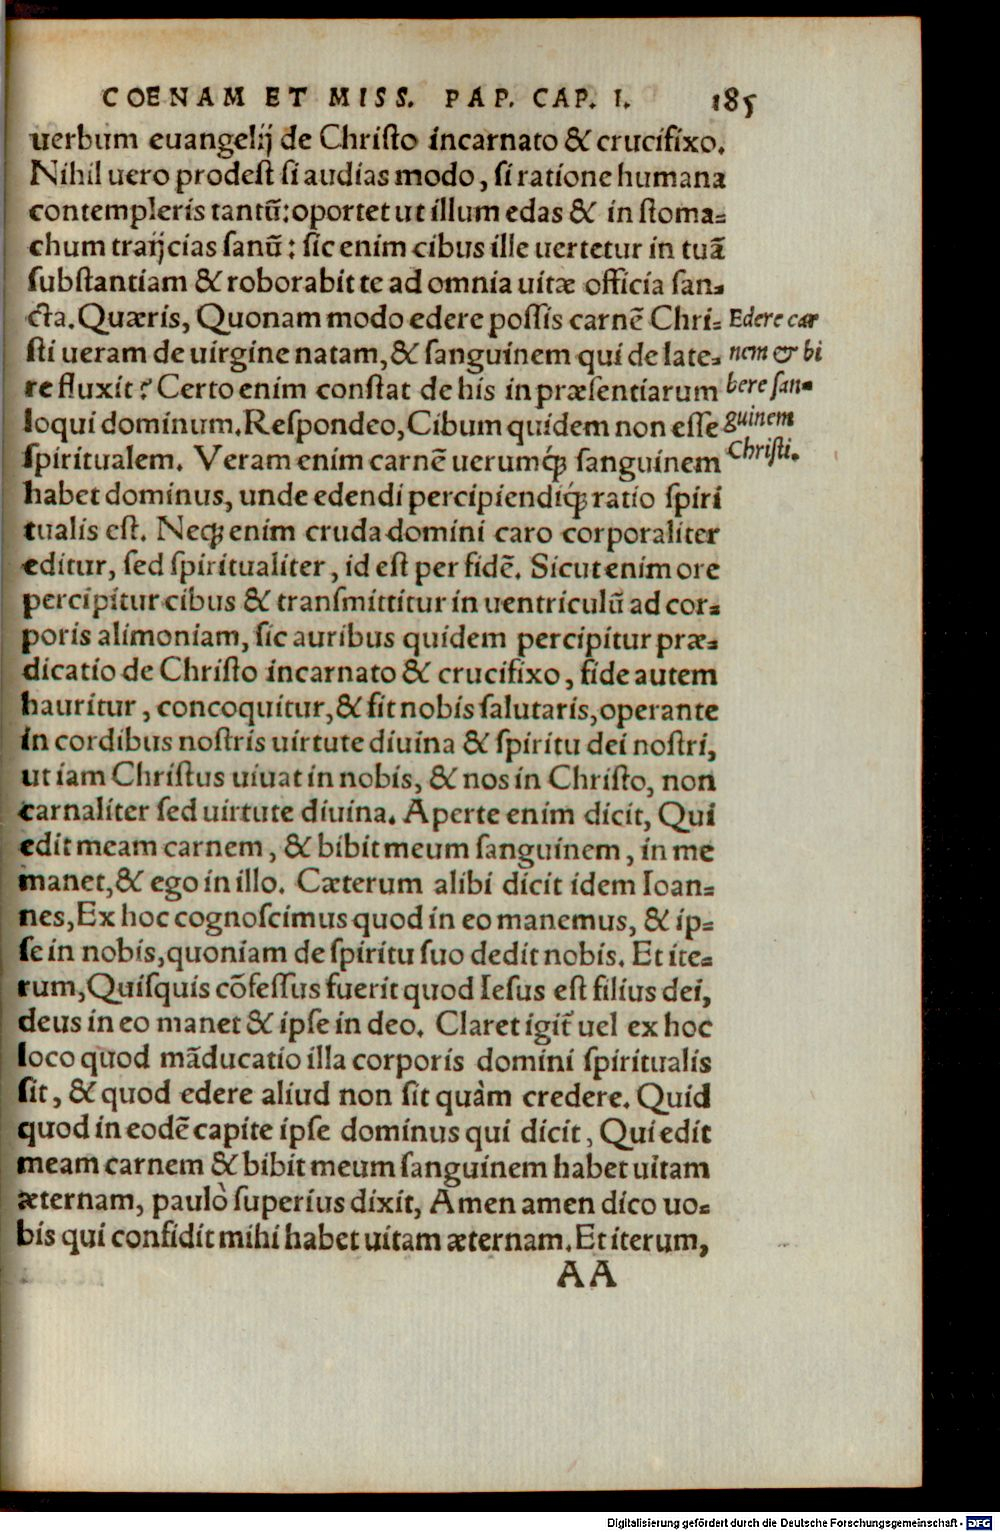 COENAM ET MISS. PAP. CAP. I. 185
uerbum euangelij de Christo incarnato & crucifixo.
Nihil uero prodest si audias modo, si ratione humana
contempleris tantũ: oportet ut illum edas & in stoma=
chum traijcias sanũ: sic enim cibus ille uertetur in tuã
substantiam & roborabit te ad omnia uitæ officia san=
cta. Quæris, Quonam modo edere possis carnẽ Chri=
sti ueram de uirgine natam, & sanguinem qui de late=
re fluxit? Certo enim constat de his in præsentiarum
loqui dominum. Respondeo, Cibum quidem non esse
spiritualem. Veram enim carnẽ uerumq́ꝫ sanguinem
habet dominus, unde edendi percipiendiq́ꝫ ratio spiri
tualis est. Neqꝫ enim cruda domini caro corporaliter
editur, sed spiritualiter, id est per fidẽ. Sicut enim ore
percipitur cibus & transmittitur in uentriculũ ad cor=
poris alimoniam, sic auribus quidem percipitur præ=
dicatio de Christo incarnato & crucifixo, fide autem
hauritur, concoquitur, & fit nobis salutaris, operante
in cordibus nostris uirtute diuina & spiritu dei nostri,
ut iam Christus uiuat in nobis, & nos in Christo, non
carnaliter sed uirtute diuina. Aperte enim dicit, Qui
edit meam carnem, & bibit meum sanguinem, in me
manet, & ego in illo. Cæterum alibi dicit idem Ioan=
nes, Ex hoc cognoscimus quod in eo manemus, & ip=
se in nobis, quoniam de spiritu suo dedit nobis. Et ite=
rum, Quisquis cõfessus fuerit quod Iesus est filius dei,
deus in eo manet & ipse in deo. Claret igit̃ uel ex hoc
loco quod mãducatio illa corporis domini spiritualis
sit, & quod edere aliud non sit quàm credere. Quid
quod in eodẽ capite ipse dominus qui dicit, Qui edit
meam carnem & bibit meum sanguinem habet uitam
æternam, paulò superius dixit, Amen amen dico uo=
bis qui confidit mihi habet uitam æternam. Et iterum,
AA
Edere car
nem & bi
bere san=
guinem
Christi.
Digitalisierung gefördert durch die Deutsche Forschungsgemeinschaft - DFG